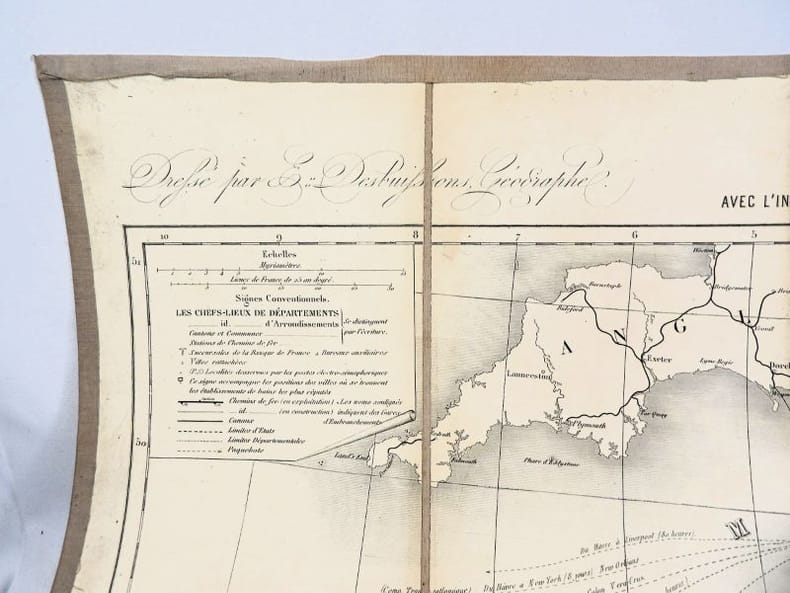 Dressé par E. Desbuissons, Géographe.
AVEC L'IN
10 9 8 7 6 5
51
Echelles
Myriamètres.
Lieues de France de 25 au degré.
Signes Conventionnels.
LES CHEFS-LIEUX DE DÉPARTEMENTS
id. d'Arrondissements
Se distinguent
par l'écriture.
Cantons et Communes
Stations de Chemins de fer
Succursales de la Banque de France & Bureaux auxiliaires
Villes rattachées
(P.S) Localités desservies par les postes électro-sémaphoriques
Ce signe accompagne les positions des villes où se trouvent
les établissements de bains les plus réputés
Chemins de fer (en exploitation) Les noms soulignés
id. (en construction) indiquent les Gares
Canaux d'Embranchements
Limites d'Etats
Limites Départementales
Paquebots
50
Barnstaple
Bideford
Bridgewater
A N G L
Yeovil
Exeter
Lyme Regis
Dorch
Launceston
Plymouth
Phare d'Eddystone
Land's End
Falmouth
M
Du Havre à Liverpool (80 heures)
Du Hâvre à New York (8 jours) New Orléans
Colon Vera Crus